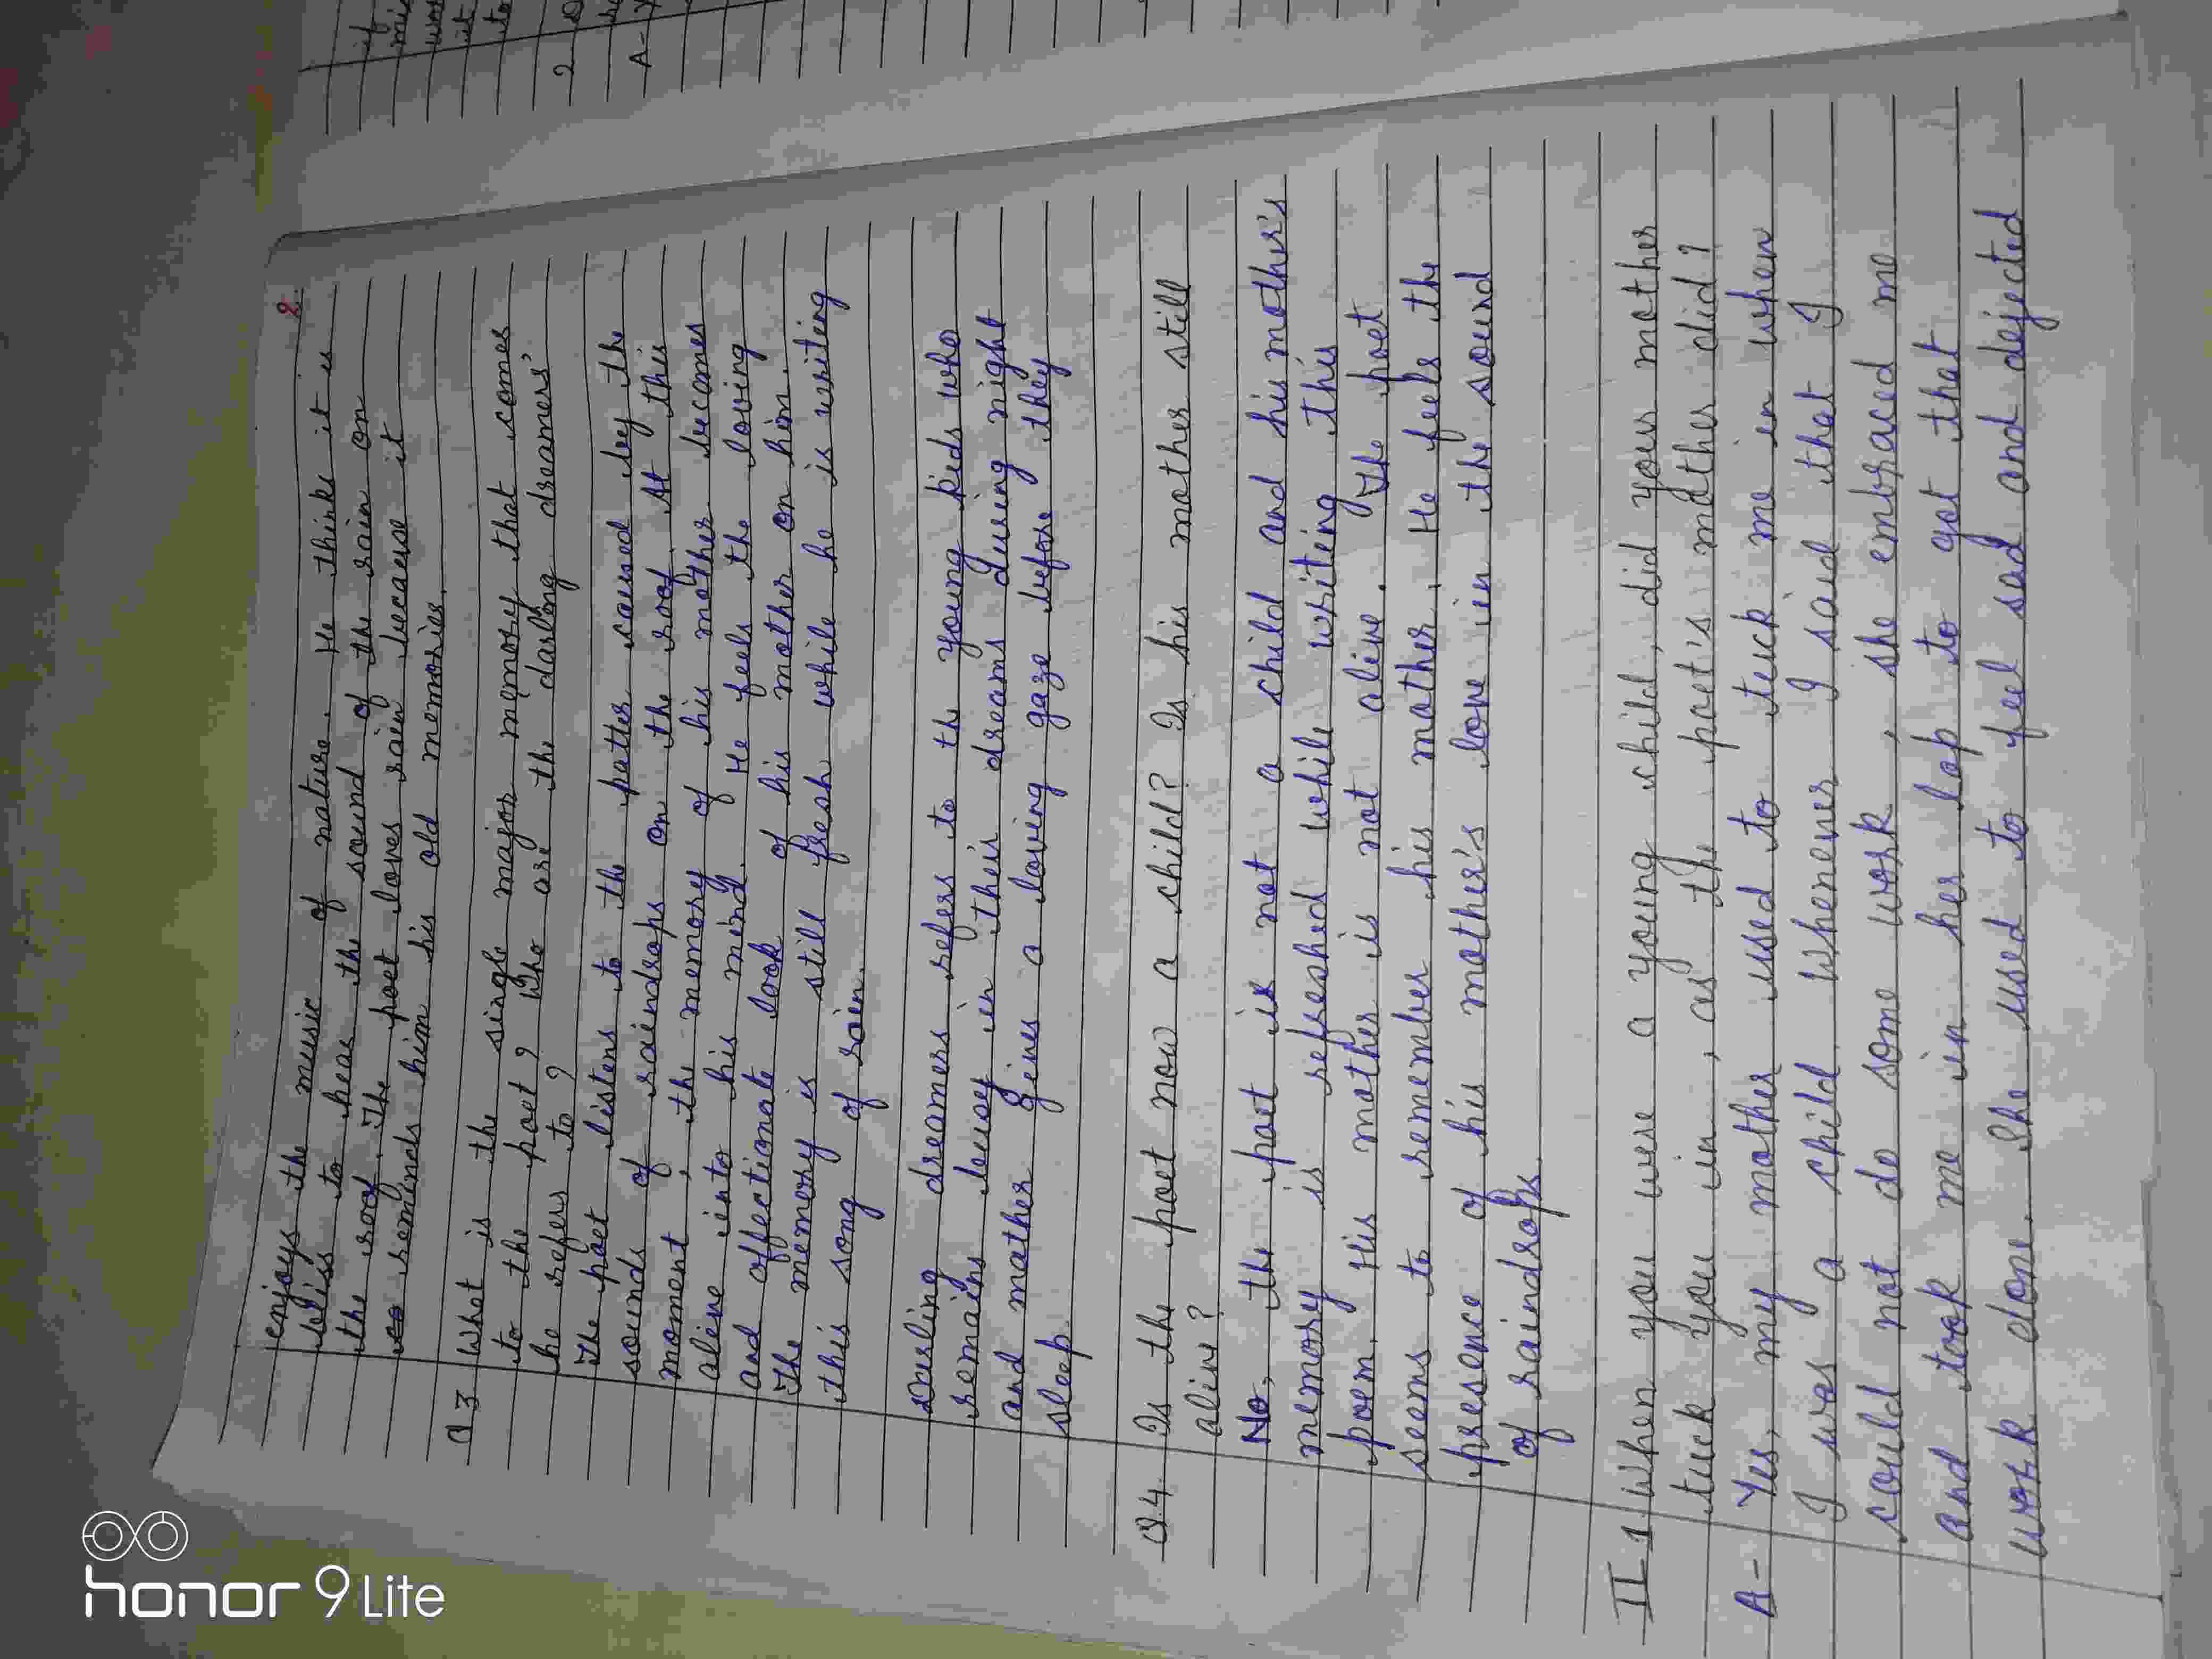 2.
enjoys the music of nature. He thinks it is
bliss to hear the sound of the rain on
the roof. The poet loves rain because it
reminds him his old memories.
Q 3 What is the single major memory that comes
to the poet? Who are the 'darling dreamers'
he refers to?
The poet listens to the patter caused by the
sounds of raindrops on the roof. At this
moment, the memory of his mother becomes
alive into his mind. He feels the loving
and affectionate look of his mother on him.
The memory is still fresh while he is writing
this song of rain.
Darling dreamers refers to the young kids who
remains busy in their dreams during night
and mother gives a loving gaze before they
sleep.
Q.4. Is the poet now a child? Is his mother still
alive?
No, the poet is not a child and his mother's
memory is refreshed while writing this
poem. His mother is not alive. The poet
seems to remember his mother. He feels the
presence of his mother's love in the sound
of raindrops.
II-1 When you were a young child, did your mother
tuck you in, as the poet's mother did?
A- Yes, my mother used to tuck me in when
I was a child. Whenever I said that I
could not do some work, she embraced me
and took me in her lap to got that
work done. She used to feel sad and dejected
2
A-
honor 9 Lite